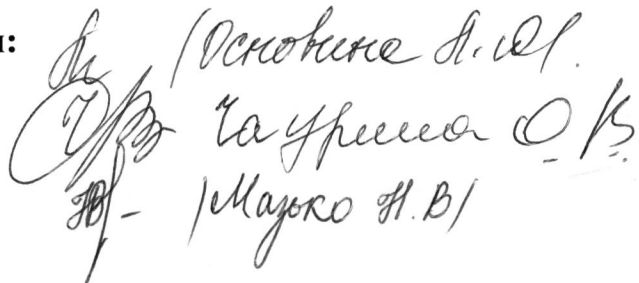 и:
/Основина Л.Ю/.
Чаурина О.В.
/Мазько Н.В/